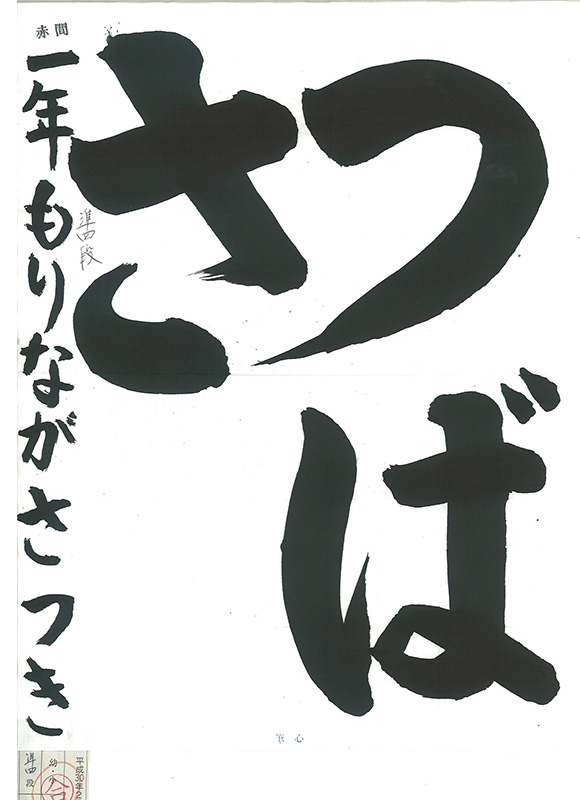 つば
さ
赤間
一年もりながさつき
準四段
筆心
平成30年2
幼・小
合
準四段